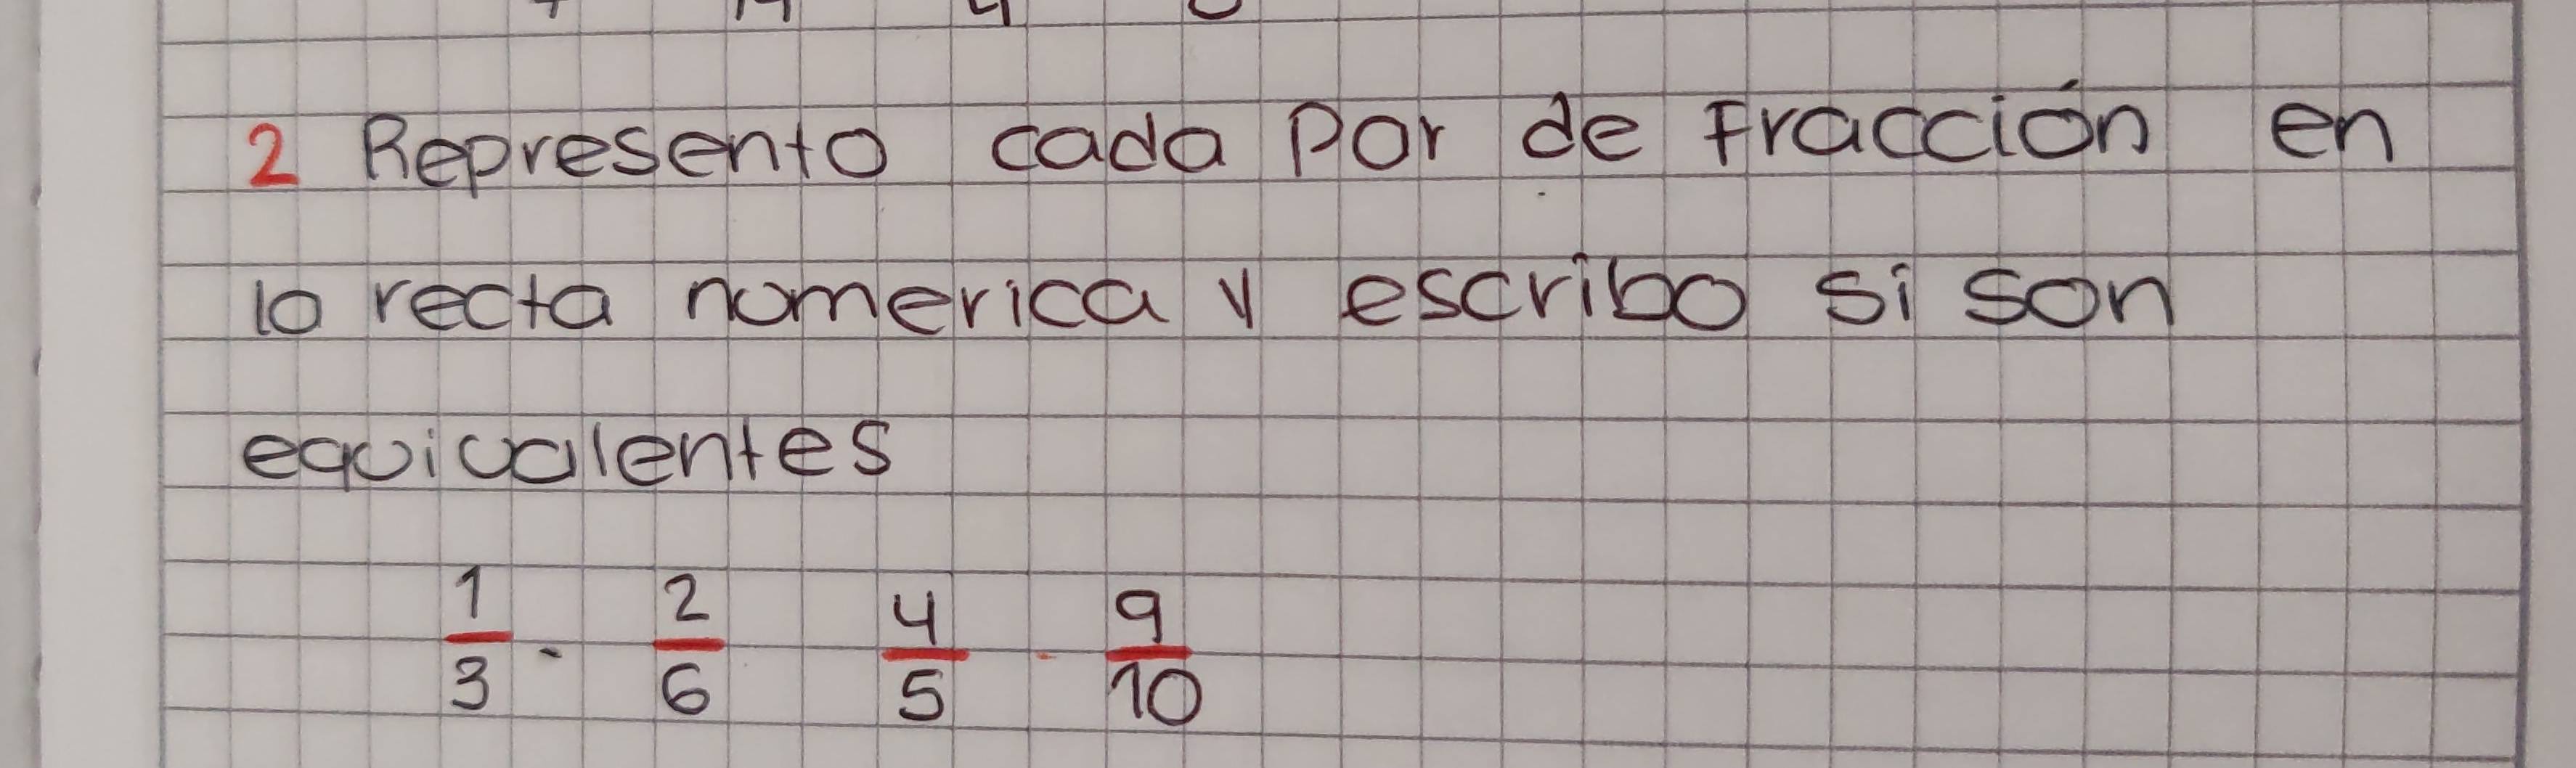 2 Represento cada Par de Fracción en
la recta numerica y escribo si son
equivalentes
1/3 - 2/6 4/5 - 9/10